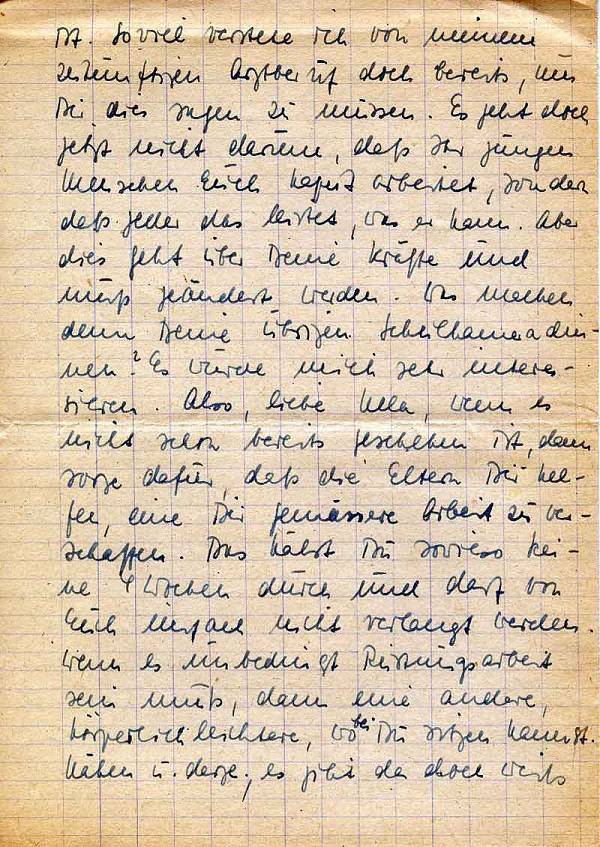 ist. Soviel verstehe ich von meinem
zukünftigen Arztberuf doch bereits, um
Dir dies sagen zu müssen. Es geht doch
jetzt nicht darum, daß Ihr jungen
Menschen Euch kaputt arbeitet, sondern
daß jeder das leistet, was er kann. Aber
dies geht über Deine Kräfte und
muß geändert werden. Was machen
denn Deine übrigen Schulkameradin-
nen? Es würde mich sehr interes-
sieren. Also, liebe Ulla, wenn es
nicht schon bereits geschehen ist, dann
sorge dafür, daß die Eltern Dir hel-
fen, eine Dir gemässere Arbeit zu ver-
schaffen. Das hälst Du sowieso kei-
ne 4 Wochen durch und darf von
Euch einfach nicht verlangt werden.
Wenn es unbedingt Rüstungsarbeit
sein muß, dann eine andere,
körperlich leichtere, wobei Du sitzen kannst.
Nähen u. dergl., es gibt da doch